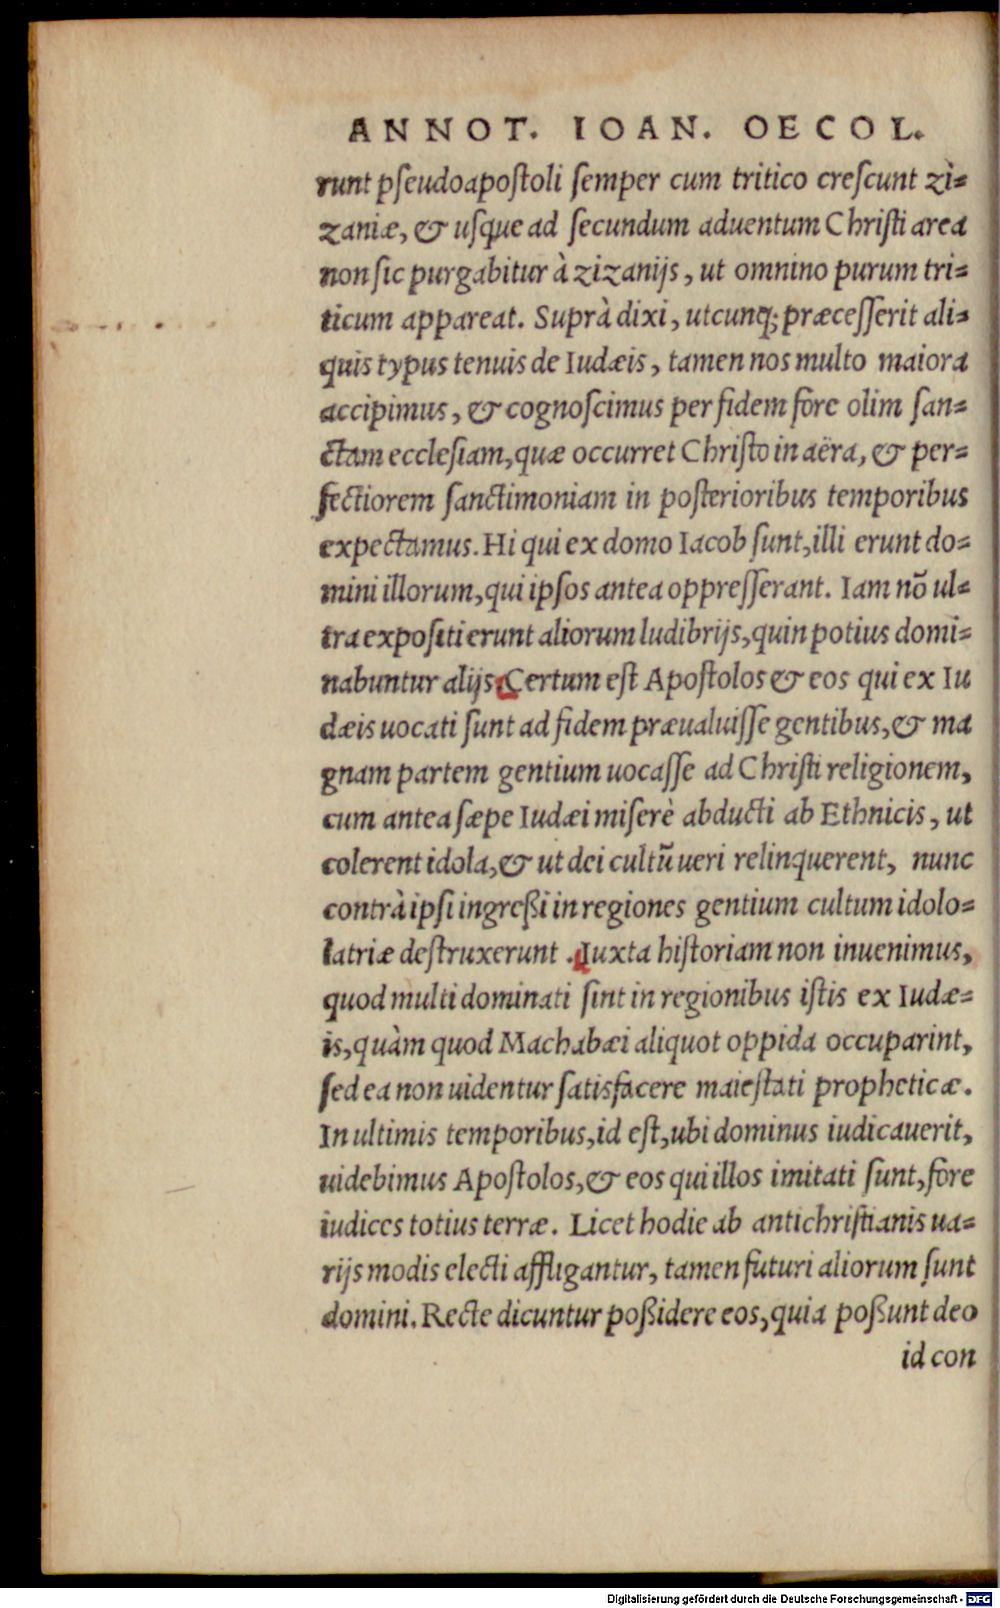 ANNOT. IOAN. OECOL.
runt pſeudoapoſtoli ſemper cum tritico creſcunt zi-
zaniæ, & uſque ad ſecundum aduentum Chriſti area
non ſic purgabitur à zizanijs, ut omnino purum tri-
ticum appareat. Suprà dixi, utcunq; præceſſerit ali-
quis typus tenuis de Iudæis, tamen nos multo maiora
accipimus, & cognoſcimus per fidem fore olim ſan-
ctam eccleſiam, quæ occurret Chriſto in aëra, & per-
fectiorem ſanctimoniam in poſterioribus temporibus
expectamus. Hi qui ex domo Iacob ſunt, illi erunt do-
mini illorum, qui ipſos antea oppreſſerant. Iam nō ul-
tra expoſiti erunt aliorum ludibrijs, quin potius domi-
nabuntur alijs. Certum eſt Apoſtolos & eos qui ex Iu
dæis uocati ſunt ad fidem præualuiſſe gentibus, & ma
gnam partem gentium uocaſſe ad Chriſti religionem,
cum antea ſæpe Iudæi miſerè abducti ab Ethnicis, ut
colerent idola, & ut dei cultū ueri relinquerent, nunc
contrà ipſi ingreßi in regiones gentium cultum idolo-
latriæ deſtruxerunt. Iuxta hiſtoriam non inuenimus,
quod multi dominati ſint in regionibus iſtis ex Iudæ-
is, quàm quod Machabæi aliquot oppida occuparint,
ſed ea non uidentur ſatisfacere maieſtati propheticæ.
In ultimis temporibus, id eſt, ubi dominus iudicauerit,
uidebimus Apoſtolos, & eos qui illos imitati ſunt, fore
iudices totius terræ. Licet hodie ab antichriſtianis ua-
rijs modis electi affligantur, tamen futuri aliorum ſunt
domini. Recte dicuntur poßidere eos, quia poßunt deo
id con
Digitalisierung gefördert durch die Deutsche Forschungsgemeinschaft - DFG